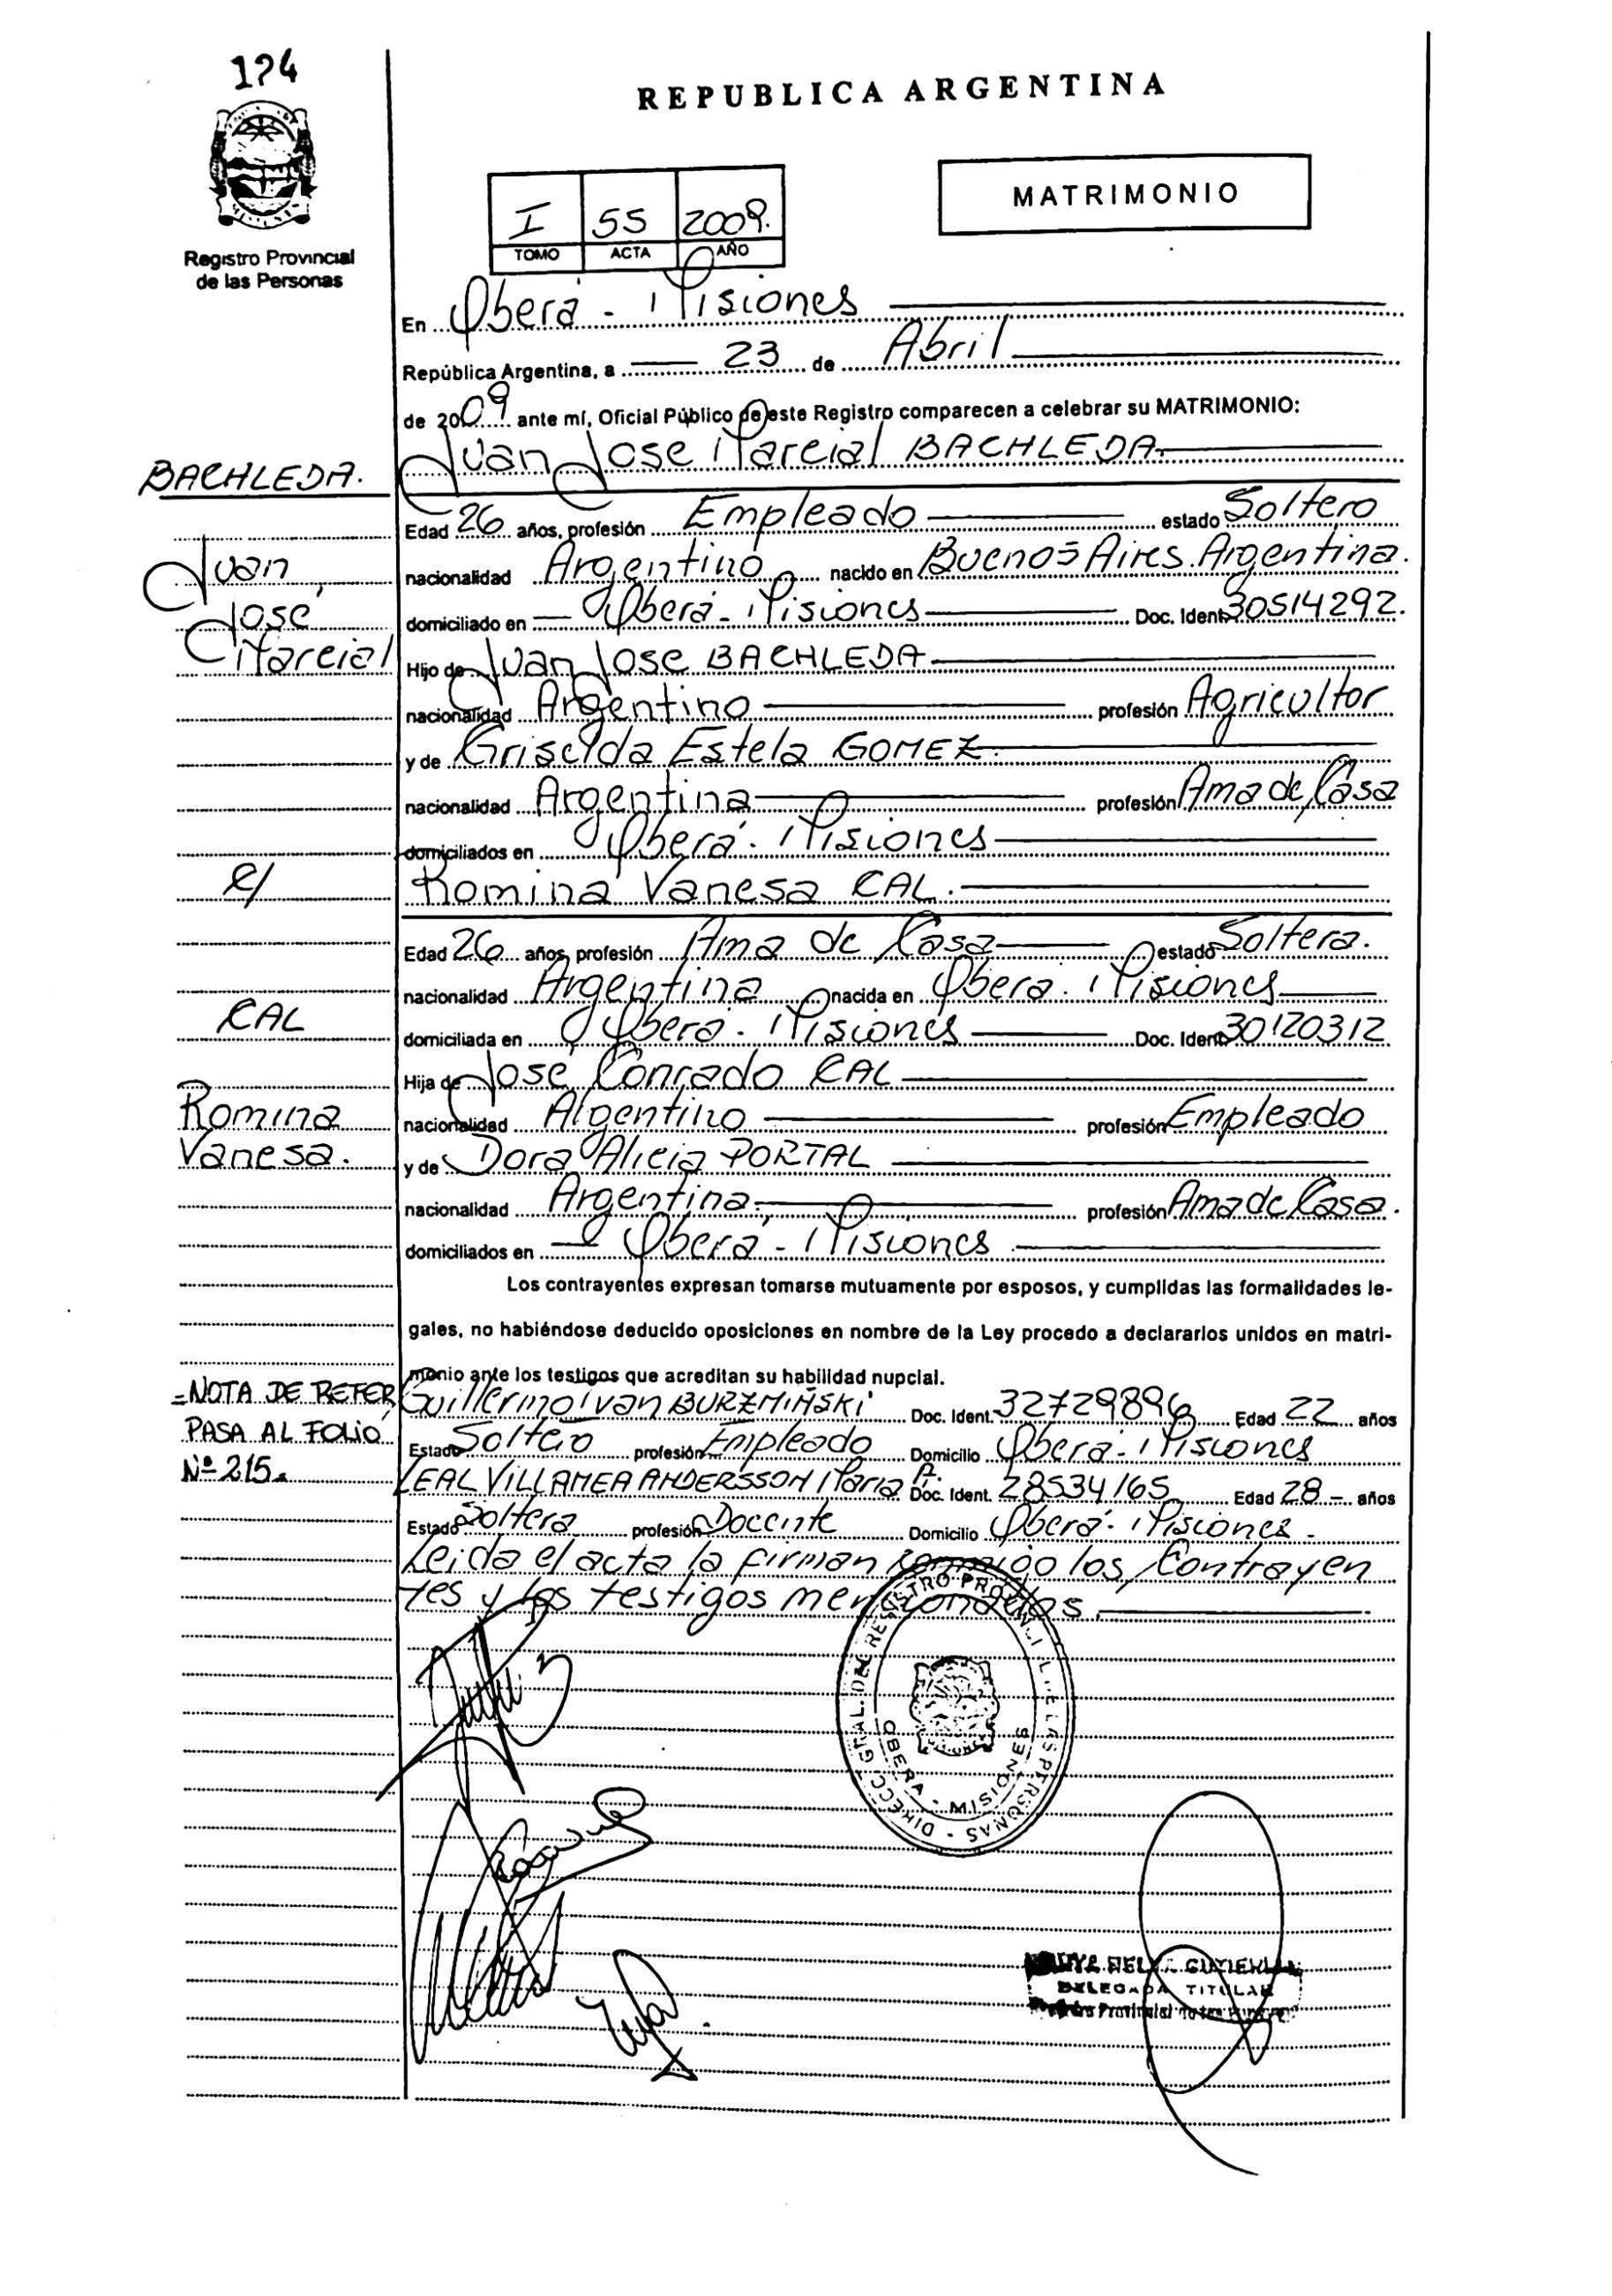 124
REPUBLICA ARGENTINA
MATRIMONIO
I 55 2009.
TOMO ACTA AÑO
Registro Provincial
de las Personas
En Oberá - Misiones
República Argentina, a 23 de Abril
de 2009 ante mí, Oficial Público de este Registro comparecen a celebrar su MATRIMONIO:
Juan Jose Marcial BACHLEDA
BACHLEDA.
Edad 26 años, profesión Empleado estado Soltero
Juan,
nacionalidad Argentino nacido en Buenos Aires. Argentina.
José
domiciliado en Oberá - Misiones Doc. Ident 30514292.
Marcial
Hijo de Juan Jose BACHLEDA
nacionalidad Argentino profesión Agricultor
y de Griselda Estela GOMEZ.
nacionalidad Argentina profesión Ama de Casa
domiciliados en Oberá - Misiones
c/
Romina Vanesa CAL.
Edad 26 años, profesión Ama de Casa estado Soltera.
nacionalidad Argentina nacida en Oberá - Misiones
CAL
domiciliada en Oberá - Misiones Doc. Ident 30120312
Hija de José Conrado CAL
Romina
nacionalidad Argentino profesión Empleado
Vanesa.
y de Dora Alicia PORTAL
nacionalidad Argentina profesión Ama de Casa.
domiciliados en Oberá - Misiones
Los contrayentes expresan tomarse mutuamente por esposos, y cumplidas las formalidades le-
gales, no habiéndose deducido oposiciones en nombre de la Ley procedo a declararlos unidos en matri-
monio ante los testigos que acreditan su habilidad nupcial.
=NOTA DE REFER,
PASA AL FOLIO
Nº 215.
Guillermo Ivan BURZMIŃSKI Doc. Ident. 32729896 Edad 22 años
Estado Soltero profesión Empleado Domicilio Oberá - Misiones
LEAL VILLAMEA ANDERSSON Maria A. Doc. Ident. 28534165 Edad 28 - años
Estado Soltera profesión Docente Domicilio Oberá - Misiones.
Leida el acta la firman conmigo los Contrayen
tes y los testigos mencionados.
DIRECC. GRAL. DEL REGISTRO PROVINCIAL DE LAS PERSONAS
OBERA - MISIONES
DELEGADA TITULAR